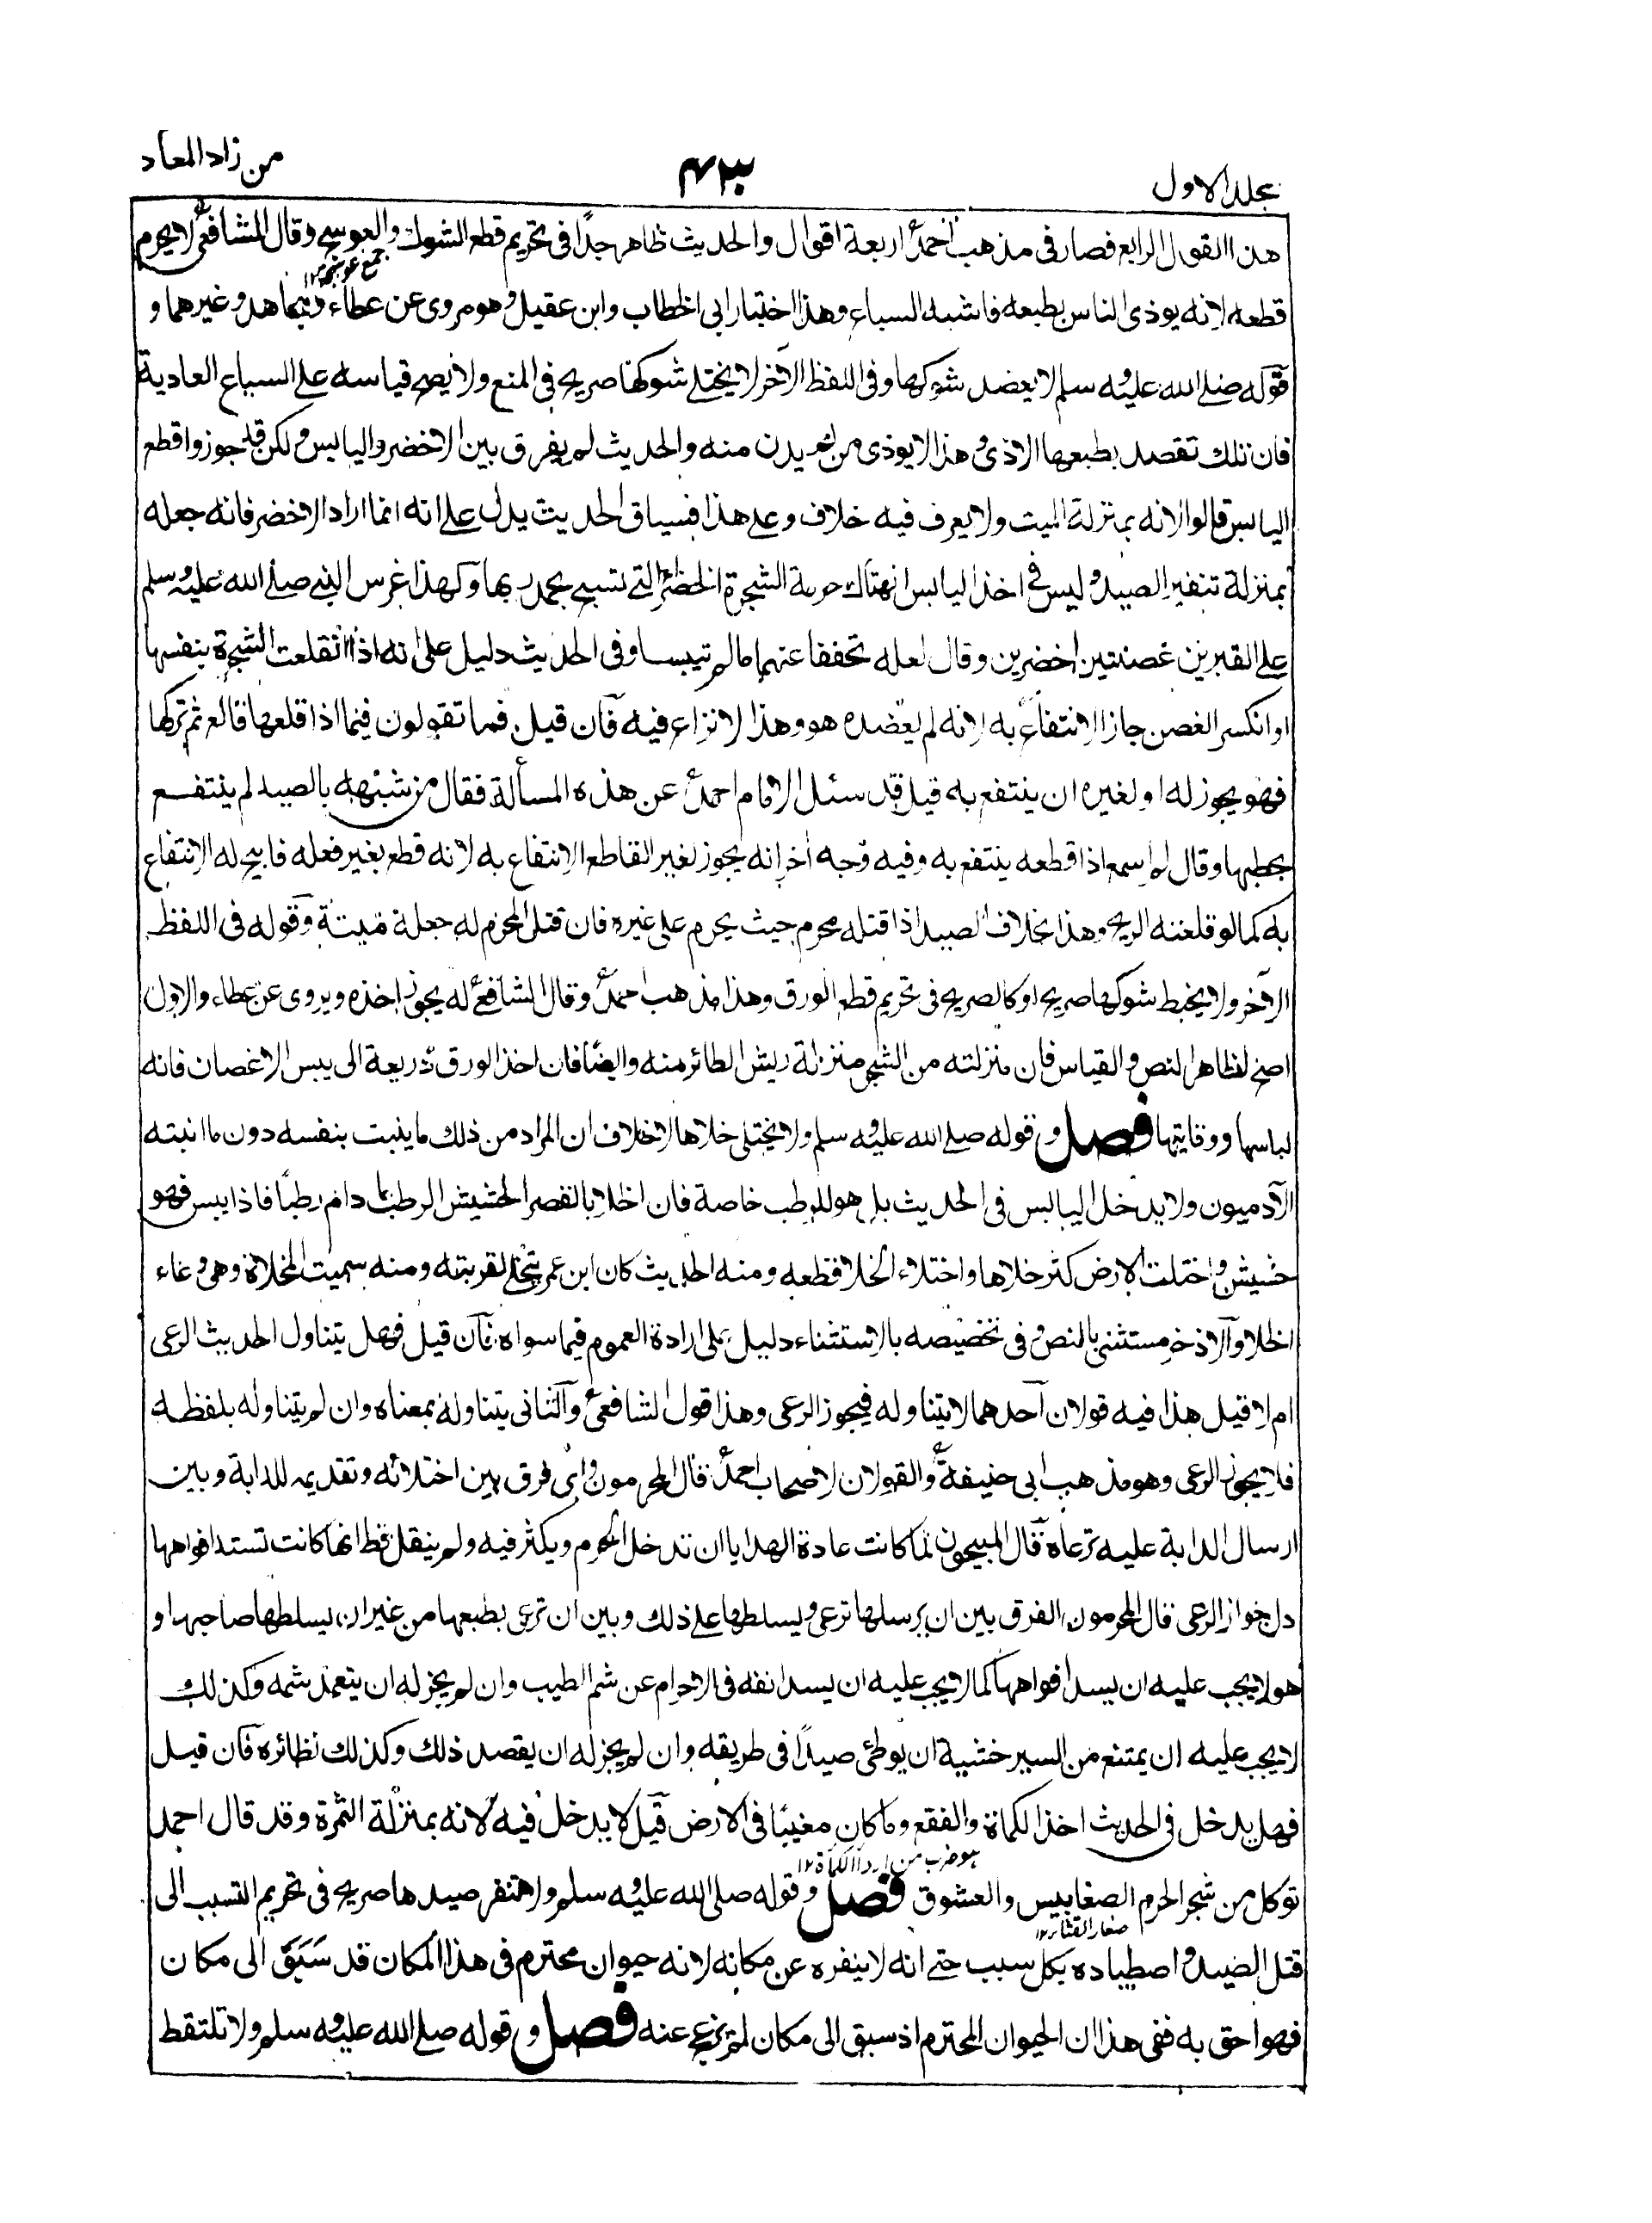 مجلد الاول
۴۳۰
من زاد المعاد
هذا القول الرابع فصار فى مذهب احمدؒ اربعة اقوال والحديث ظاهر جدًا فى تحريم قطع الشوك والعوسج وقال الشافعىؒ لا يحرم
جمع عوسجة ۱۲
قطعه لانه يوذى الناس بطبعه فاشبه السباع وهذا اختيار ابى الخطاب وابن عقيل وهو مروى عن عطاء ومجاهد وغيرهما و
قوله صلى الله عليه وسلم لا يعضد شوكها وفى اللفظ الآخر لا يختلے شوكها صريح فى المنع ولا يصح قياسه علے السباع العادية
فان تلك تقصد بطبعها الاذى وهذا لا يوذى من لم يدن منه والحديث لم يفرق بين الاخضر واليابس ولكن قد جوزوا قطع
اليابس قالوا لانه بمنزلة الميت ولا يعرف فيه خلاف وعلے هذا فسياق الحديث يدل علے انه انما اراد الاخضر فانه جعله
بمنزلة تنفير الصيد وليس فى اخذ اليابس انهتاك حرمة الشجرة الخضراء التے تسبح بحمد ربها ولهذا غرس النبے صلے الله عليه وسلم
علے القبرين غصنتين اخضرين وقال لعله تخففا عنهما مالم تيبسا وفى الحديث دليل على انه اذا انقلعت الشجرة بنفسها
او انكسر الغصن جاز الانتفاع به لانه لم يعضده هو وهذا لا نزاع فيه فان قيل فما تقولون فيما اذا قلعها قالع ثم تركها
فهو يجوز له او لغيره ان ينتفع به قيل قد سئل الامام احمدؒ عن هذه المسألة فقال من شبهه بالصيد لم ينتفع
بحطبها وقال لم اسمع اذا قطعه ينتفع به وفيه وجه اخر انه يجوز لغير القاطع الانتفاع به لانه قطع بغير فعله فابيح له الانتفاع
به كما لو قلعته الريح وهذا بخلاف الصيد اذا قتله محرم حيث يحرم على غيره فان قتل المحرم له جعلة ميتة وقوله فى اللفظ
الآخر ولا يخبط شوكها صريح او كالصريح فى تحريم قطع الورق وهذا مذهب احمدؒ وقال الشافعےؒ له يجوز اخذه ويروى عن عطاء والاول
اصح لظاهر النص والقياس فان منزلته من الشجر منزلة ريش الطائر منه وايضًا فان اخذ الورق ذريعة الى يبس الاغصان فانه
لباسها ووقايتها فصل وقوله صلے الله عليه وسلم ولا يختلى خلاها لا خلاف ان المراد من ذلك ما ينبت بنفسه دون ما انبته
الآدميون ولا يدخل اليابس فى الحديث بل هو للرطب خاصة فان الخلا بالقصر الحشيش الرطب ما دام رطبًا فاذا يبس فهو
حشيش واختلت الارض كثر خلاها واختلاء الخلا قطعه ومنه الحديث كان ابن عمر يختلے لقربته ومنه سميت المخلاة وهى وعاء
الخلا والاذخر مستثنى بالنص وفى تخصيصه بالاستثناء دليل على ارادة العموم فيما سواه فان قيل فهل يتناول الحديث الرعى
ام لا قيل هذا فيه قولان احدهما لا يتناوله فيجوز الرعى وهذا قول الشافعىؒ والثانى يتناوله بمعناه وان لم يتناوله بلفظه
فلا يجوز الرعى وهو مذهب ابى حنيفةؒ والقولان لاصحاب احمدؒ قال المحرمون واى فرق بين اختلائه وتقديمه للدابة وبين
ارسال الدابة عليه ترعاه قال المبيحون لما كانت عادة الهدايا ان تدخل الحرم ويكثر فيه ولم ينقل قط انها كانت تسد افواهها
دل جواز الرعى قال المحرمون الفرق بين ان يرسلها ترعى ويسلطها علے ذلك وبين ان ترعى بطبعها من غير ان يسلطها صاحبها و
هو لا يجب عليه ان يسد افواهها كما لا يجب عليه ان يسد انفه فى الاحرام عن شم الطيب وان لم يجز له ان يتعمد شمه وكذلك
لا يجب عليه ان يمتنع من السير خشية ان يوطئ صيدًا فى طريقه وان لم يجز له ان يقصد ذلك وكذلك نظائره فان قيل
فهل يدخل فى الحديث اخذ الكماة والفقع وما كان مغيبًا فى الارض قيل لا يدخل فيه لانه بمنزلة الثمرة وقد قال احمد
هو ضرب من اردأ الكماة ۱۲
توكل من شجر الحرم الصغابيس والعشوق فصل وقوله صلى الله عليه وسلم ولا ينفر صيدها صريح فى تحريم التسبب الى
صغار القثاء ۱۲
قتل الصيد واصطياده بكل سبب حتے انه لا ينفره عن مكانه لانه حيوان محترم فى هذا المكان قد سَبَقَ الى مكان
فهو احق به ففى هذا ان الحيوان المحترم اذ سبق الى مكان لم يزعج عنه فصل وقوله صلے الله عليه وسلم ولا تلتقط